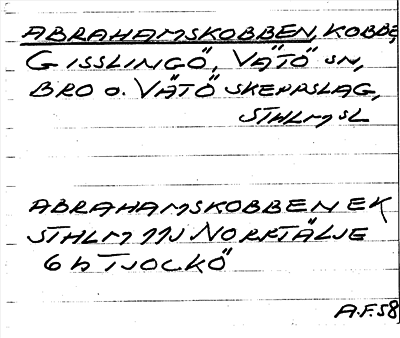 ABRAHAMSKOBBEN, KOBBE,
GISSLINGÖ, VÄTÖ SN,
BRO O. VÄTÖ SKEPPSLAG,
STHLM SL
ABRAHAMSKOBBEN EK
STHLM 11J NORRTÄLJE
6 h TJOCKÖ
A.F. 58